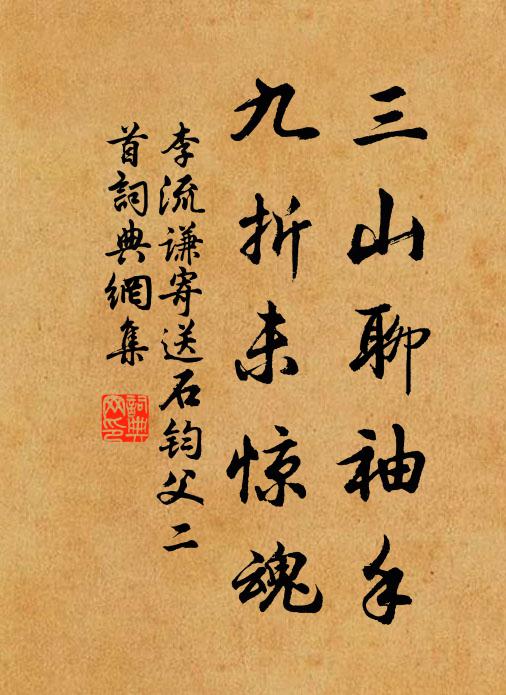 三山聊袖手
九折未惊魂
李流谦寄送石钧父二
首詞典網集
詞典
网印